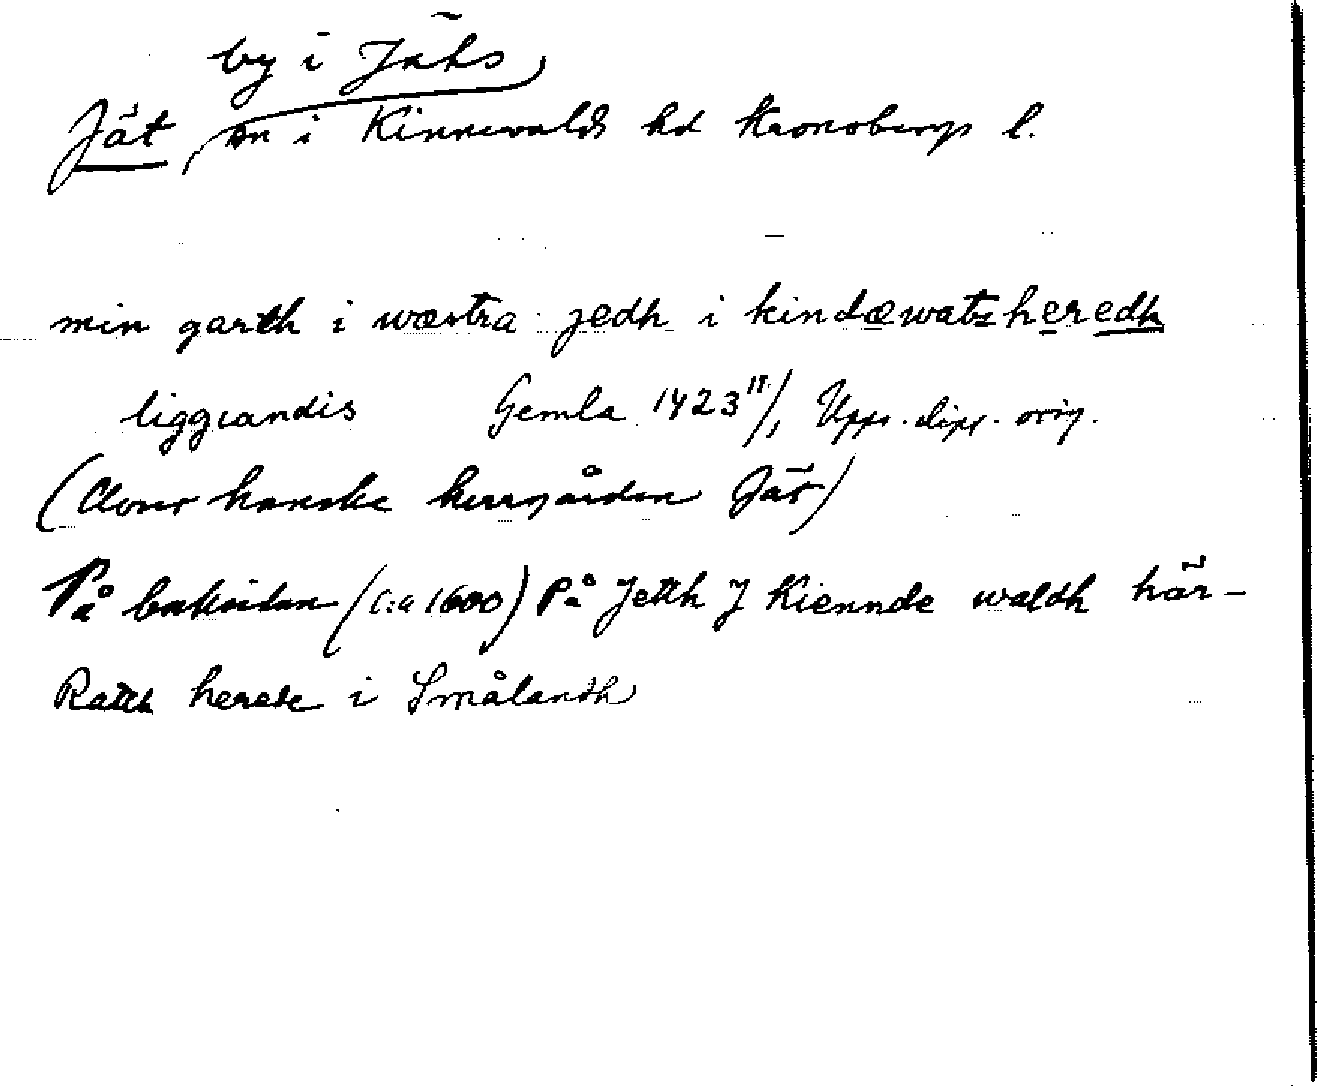 by i Jäts
Jät, sn i Kinnevalds hd Kronobergs l.
min garth i wæstra jedh i kindæwatz heredh
liggiandis Gemla 1423 11/1, Upps. dipl. orig.
(Avser kanske herrgården Jät)
På baksidan (c:a 1600) På Jetth J Kiennde waldh här-
Rath herede i Smålandh